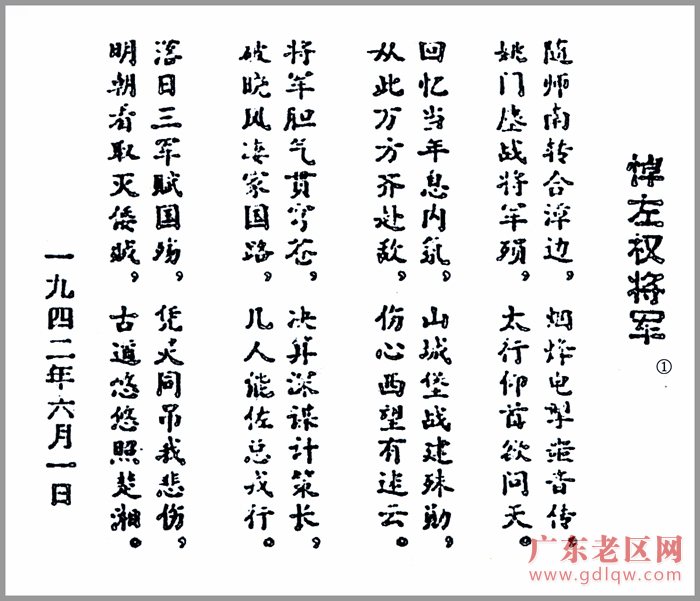 悼左权将军
①
随师南转合漳边，烟烽电掣噩音传，
姚门垒战将军殒，太行仰首欲问天。
回忆当年息内氛，山城堡战建殊勋，
从此万方齐赴敌，伤心西望有迷云。
将军胆气贯穹苍，决算深谋计策长，
破晓风凄家国路，几人能佐总戎行。
落日三军赋国殇，凭 同吊我悲伤，
明朝看取灭倭贼。古道悠悠照楚湘。
一九四二年六月一日
广东老区网
www.gdlqw.com